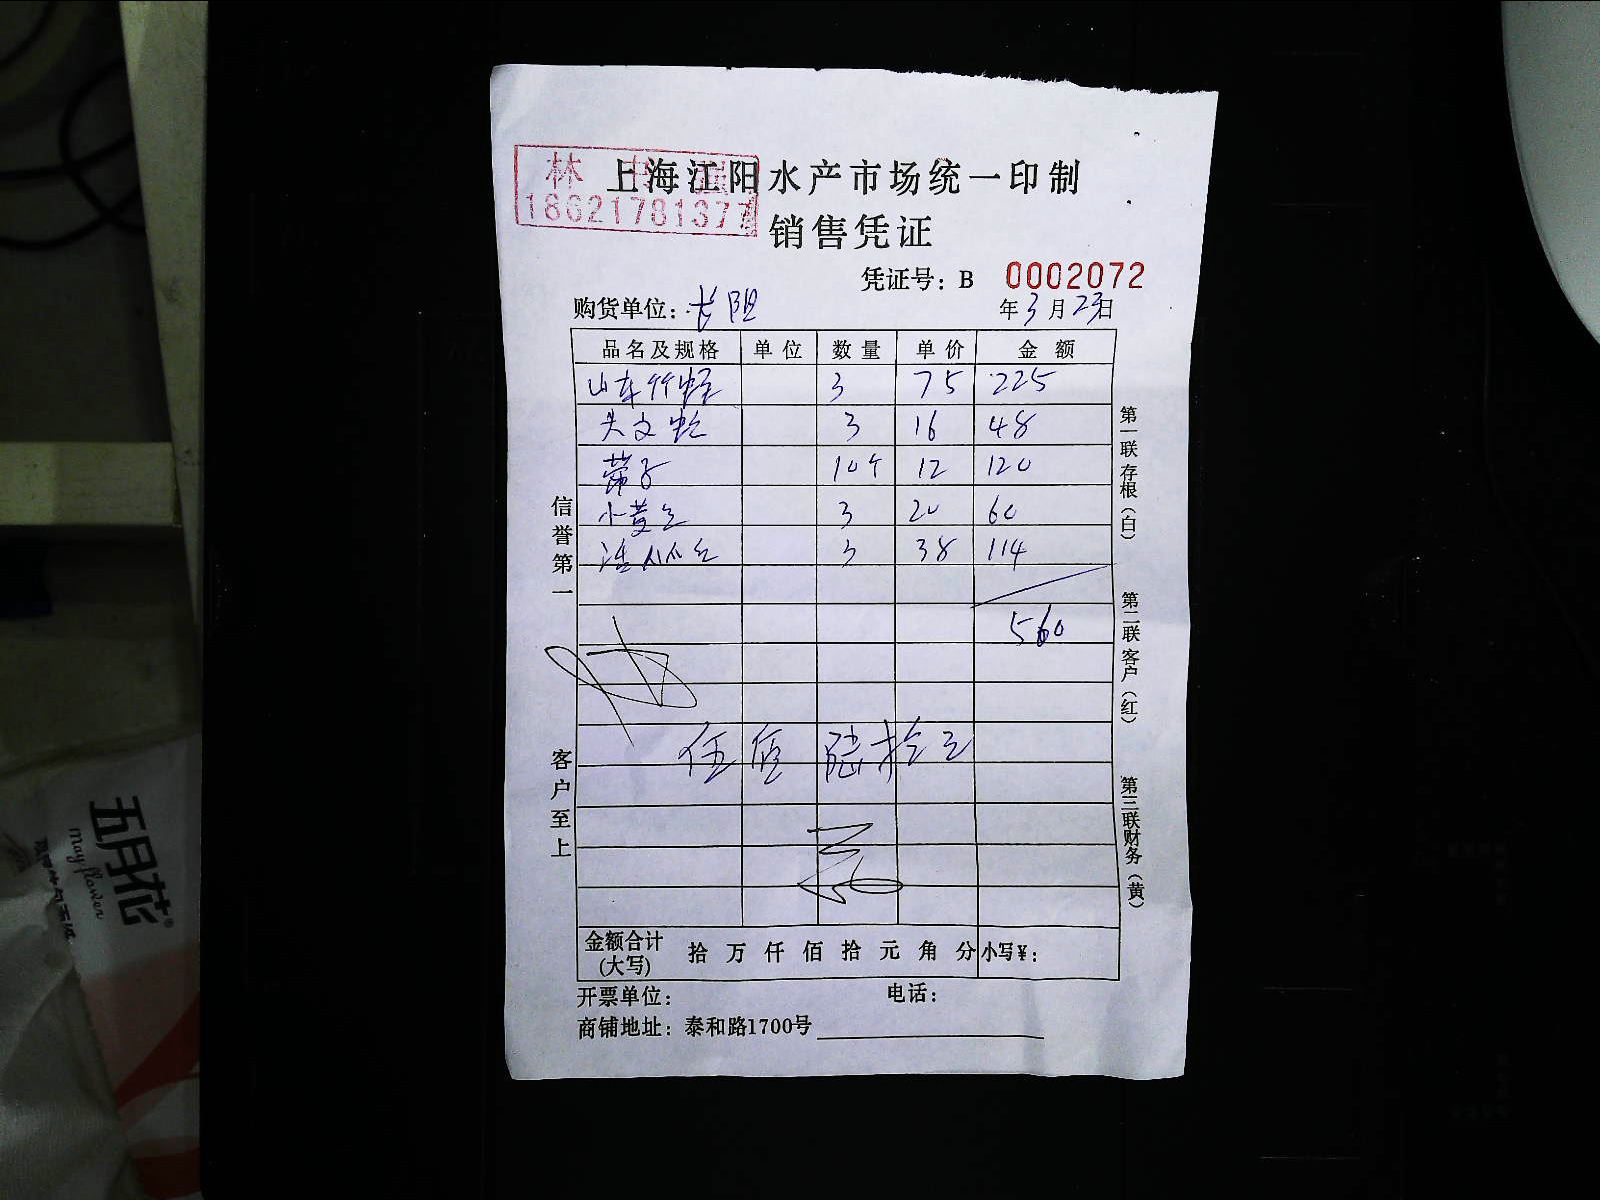 上海江阳水产市场统一印制
林
18621781377
销售凭证
凭证号：B 0002072
购货单位：长阳
年 3 月 23 日
品名及规格 单位 数量 单价 金额
山东竹蛏 3 75 225
大文蛤 3 16 48
带子 10个 12 120
小黄鱼 3 20 60
3 38 114
560
伍佰陆拾元
信誉第一
客户至上
第一联存根（白）
第二联客户（红）
第三联财务（黄）
金额合计(大写) 拾 万 仟 佰 拾 元 角 分 小写¥：
开票单位： 电话：
商铺地址：泰和路1700号
五月花
may flower